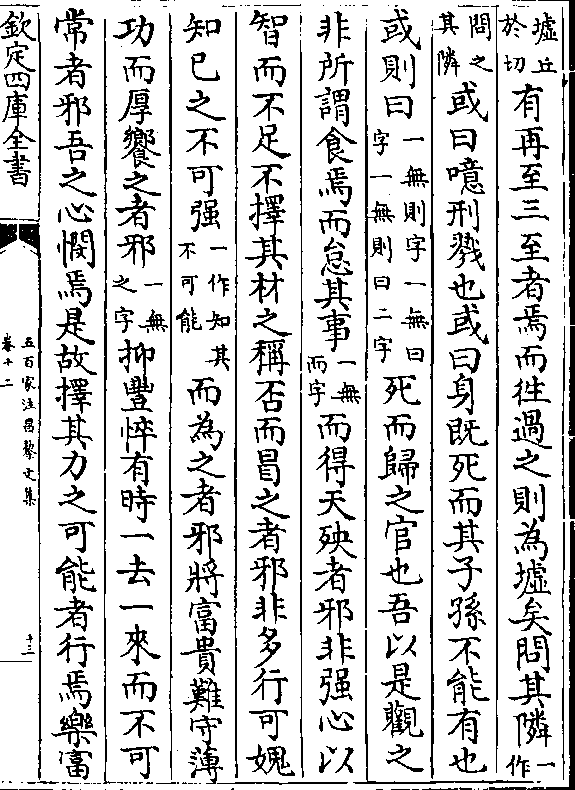 墟丘於切有再至三至者焉而往過之則為墟矣問其隣一作
問之其隣或曰噫刑戮也或曰身既死而其子孫不能有也
或則曰一無則字一無曰字一無則曰二字死而歸之官也吾以是觀之
非所謂食焉而怠其事一無而字而得天殃者邪非强心以
智而不足不擇其材之稱否而冒之者邪非多行可媿
知已之不可强一作知其不可能而為之者邪將富貴難守薄
功而厚饗之者邪一無之字抑豐悴有時一去一來而不可
常者邪吾之心憫焉是故擇其力之可能者行焉樂富
欽定四庫全書
五百家注昌黎文集
卷十二
十三